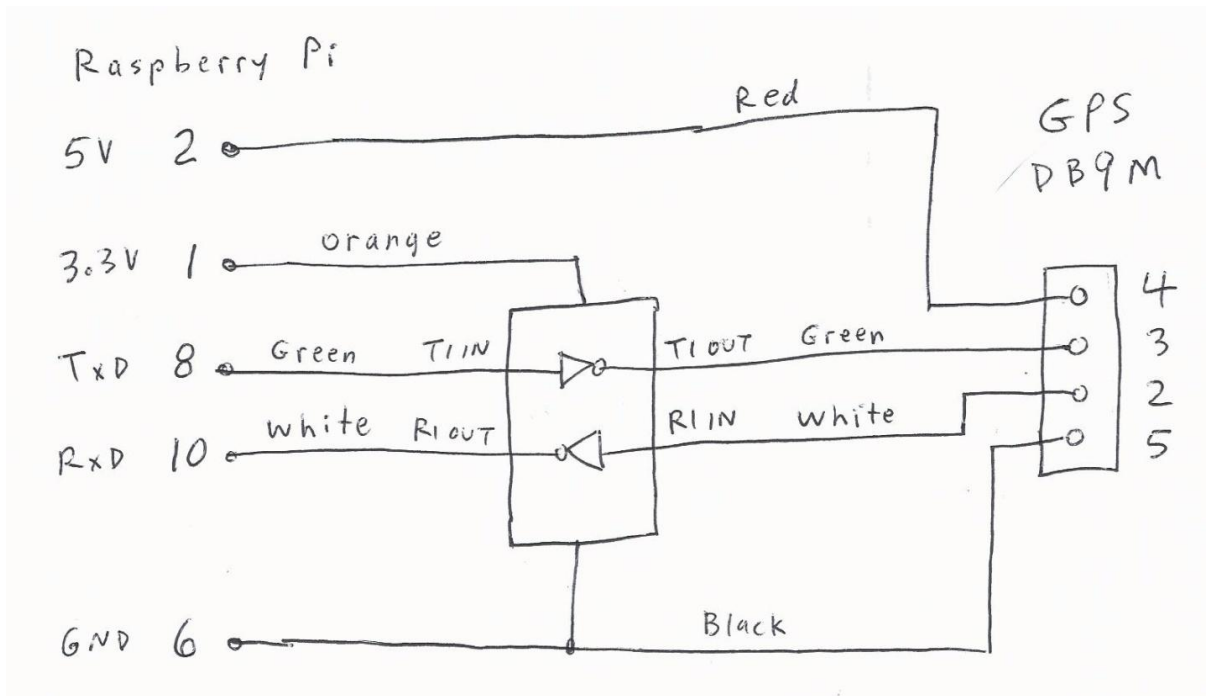 Raspberry Pi
Red
GPS
DB9M
5V 2
3.3V 1 orange
4
TxD 8 Green T1IN T1OUT Green 3
RxD 10 White R1OUT R1IN White 2
5
GND 6 Black